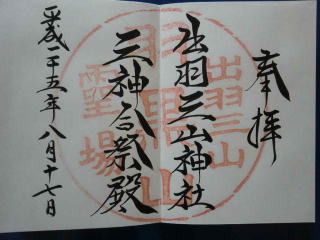 奉拝
出羽三山神社
三神合祭殿
平成二十五年八月十七日
出羽三山
霊場